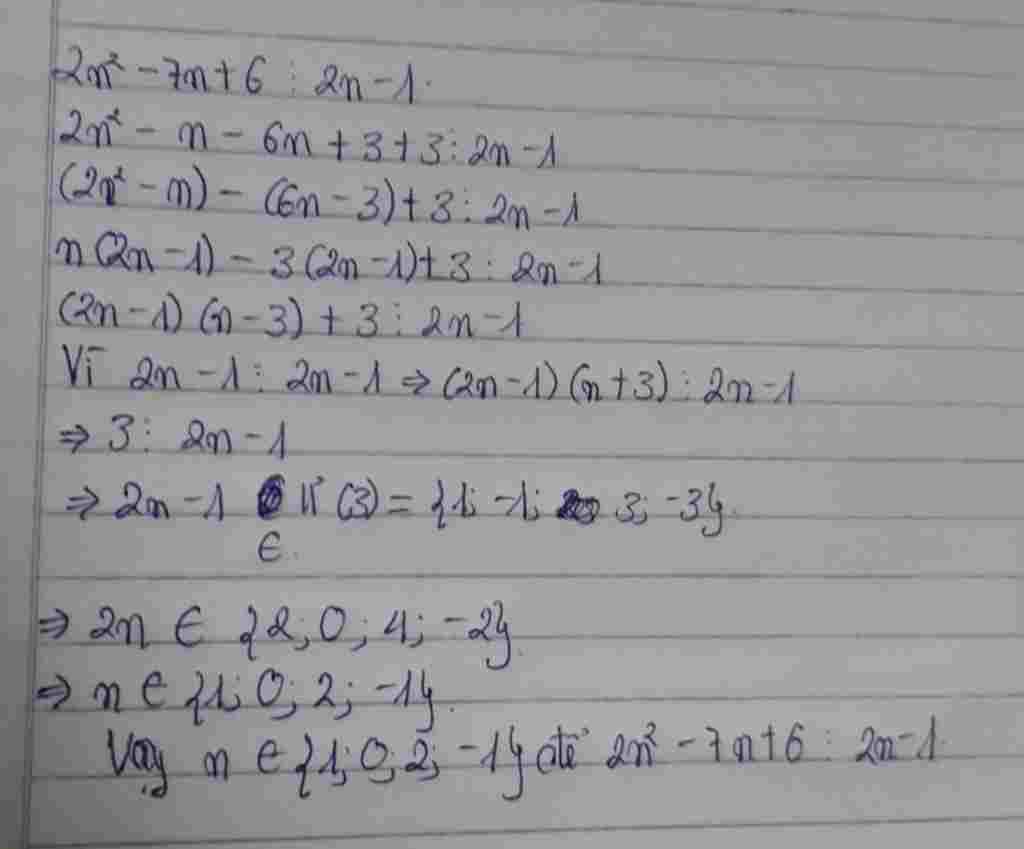 2n² - 7n + 6 ⋮ 2n - 1.
2n² - n - 6n + 3 + 3 ⋮ 2n - 1
(2n² - n) - (6n - 3) + 3 ⋮ 2n - 1
n(2n - 1) - 3(2n - 1) + 3 ⋮ 2n - 1
(2n - 1)(n - 3) + 3 ⋮ 2n - 1
Vì 2n - 1 ⋮ 2n - 1 ⇒ (2n - 1)(n + 3) ⋮ 2n - 1
⇒ 3 ⋮ 2n - 1
⇒ 2n - 1 ∈ Ư(3) = {1; -1; 3; -3}.
⇒ 2n ∈ {2; 0; 4; -2}.
⇒ n ∈ {1; 0; 2; -1}.
Vậy n ∈ {1; 0; 2; -1} để 2n² - 7n + 6 ⋮ 2n - 1